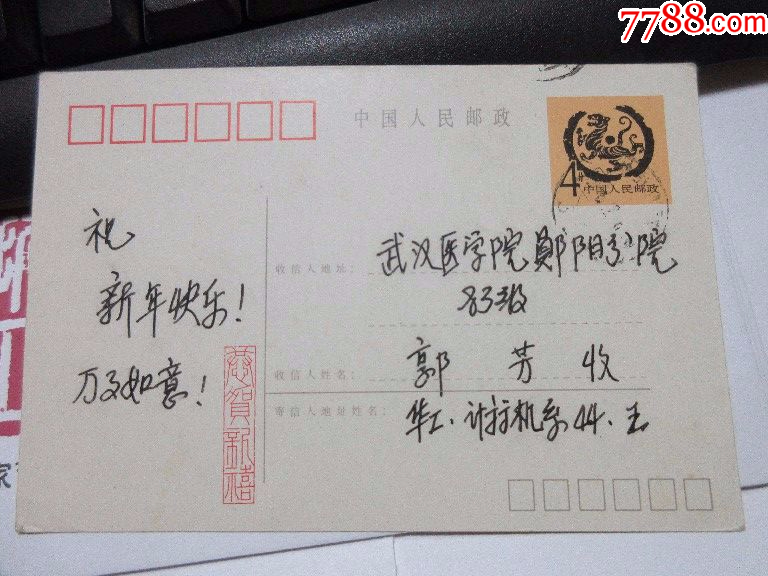 7788.com
中国人民邮政
4分
中国人民邮政
祝
新年快乐!
万事如意!
恭贺新禧
收信人地址:
武汉医学院郧阳分院
83级
收信人姓名:
郭 芳 收
寄信人地址姓名:
华工.计算机系44.王